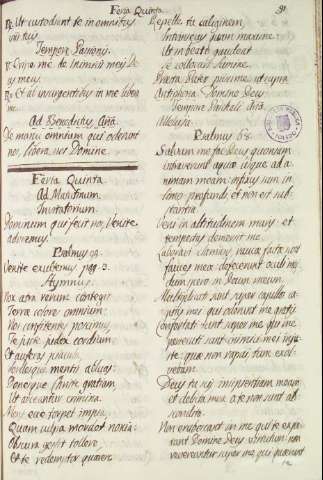 Feria Quinta
91
℟. Ut custodiant te in omnibus
viis tuis
Tempore Passionis.
℣. Eripe me de inimicis meis Deus meus
℟. Et ab insurgentibus in me libera
me.
Ad Benedictus, Aña.
De manu omnium qui oderunt
nos, libera nos Domine.
Feria Quinta
Ad Matutinum.
Invitatorium.
Dominum qui fecit nos, Venite
adoremus.
Psalmus 94.
Venite exultemus pag. 3.
Hymnus.
Nox atra rerum contegit
Terræ colores omnium:
Nos confitentes poscimus
Te juste judex cordium.
Ut auferas piacula
Sordesque mentis abluas:
Donesque Christe gratiam
Ut arceantur crimina.
Mens ecce torpet impia,
Quam culpa mordet noxia:
Obscura gestit tollere,
Et te redemptor quærere
Repelle tu caliginem
Intrinsecus quam maxime
Ut in beato gaudeat
Se collocari lumine.
Præsta Pater piissime, ut supra
Antiphona Domine Deus
Tempore Paschali Aña.
Alleluya.
Psalmus 68.
Salvum me fac Deus quoniam
intraverunt aquæ usque ad a-
nimam meam infixus sum in
limo profundi, et non est subs-
tantia
Veni in altitudinem maris et
tempestas demersit me.
Laboravi clamans, raucæ factæ sunt
fauces meæ defecerunt oculi mei
dum spero in Deum meum.
Multiplicati sunt super capillos ca-
pitis mei qui oderunt me gratis
Confortati sunt super me qui me
persecuti sunt inimici mei injus-
te quæ non rapui tunc exol-
vebam.
Deus tu scis insipientiam meam
et delicta mea a te non sunt abs-
condita.
Non erubescant in me qui te expe-
ctant Domine Deus virtutum: non
revereantur super me qui quærunt